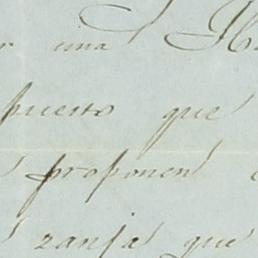 una
puesto que
proponen
zanja que